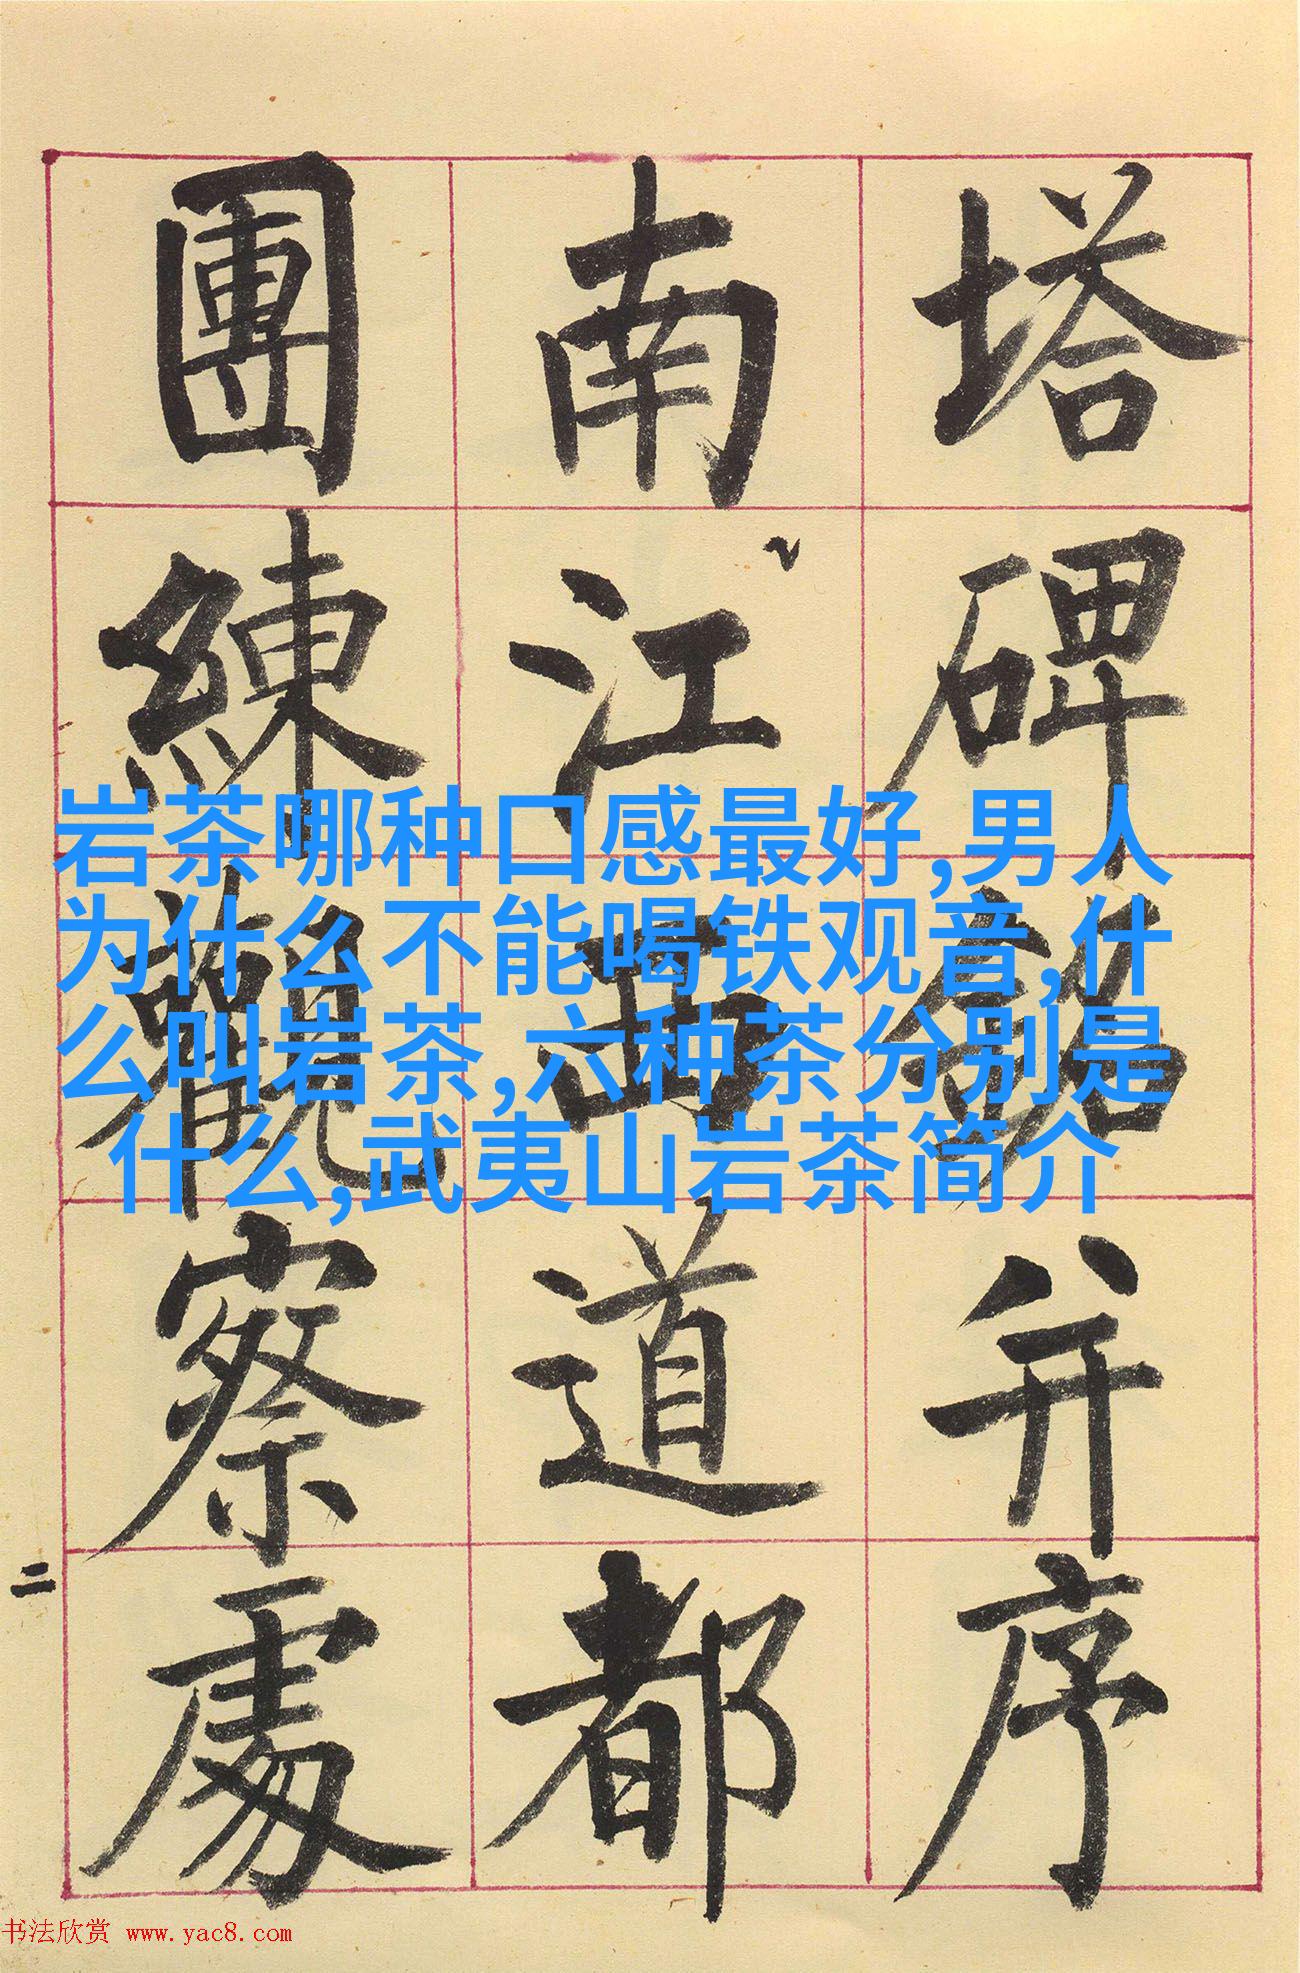 塔碑銘并序
南江西道都
團練觀察處
二
岩茶哪种口感最好,男人
为什么不能喝铁观音,什
么叫岩茶,六种茶分别是
什么,武夷山岩茶简介
书法欣赏 www.yac8.com